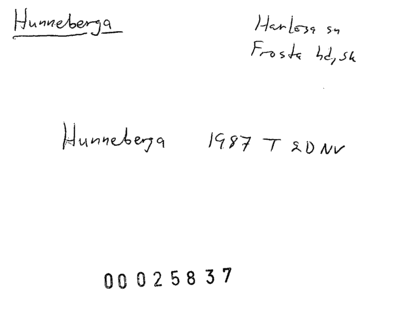 Hunneberga
Harlösa sn
Frosta hd, sk
Hunneberga 1987 T 2D NV
00025837